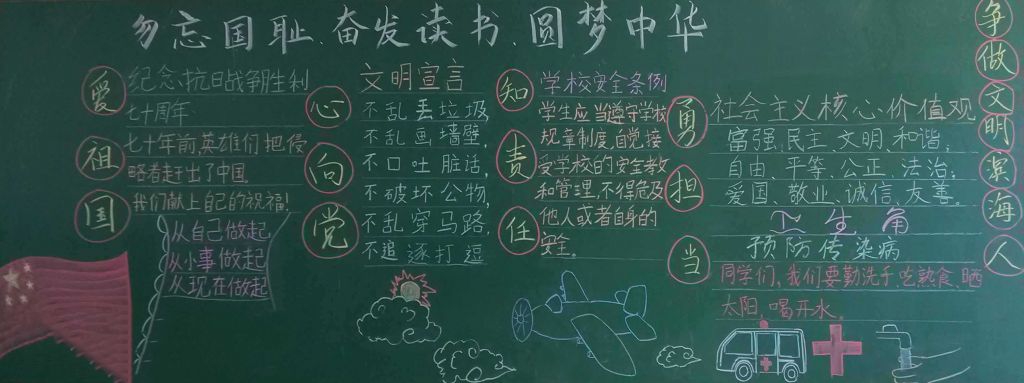 勿忘国耻、奋发读书、圆梦中华
爱祖国
纪念抗日战争胜利
七十周年
七十年前,英雄们把侵
略者赶出了中国
我们献上自己的祝福!
从自己做起
从小事做起
从现在做起
心向党
文明宣言
不乱丢垃圾,
不乱画墙壁,
不口吐脏话,
不破坏公物,
不乱穿马路,
不追逐打逗
知责任
学校安全条例
学生应当遵守学校
规章制度,自觉接
受学校的安全教
和管理,不得危及
他人或者自身的
安全。
勇担当
社会主义核心价值观
富强、民主、文明、和谐,
自由、平等、公正、法治;
爱国、敬业、诚信、友善。
卫生角
预防传染病
同学们,我们要勤洗手,吃熟食、晒
太阳,喝开水。
争做文明滨海人